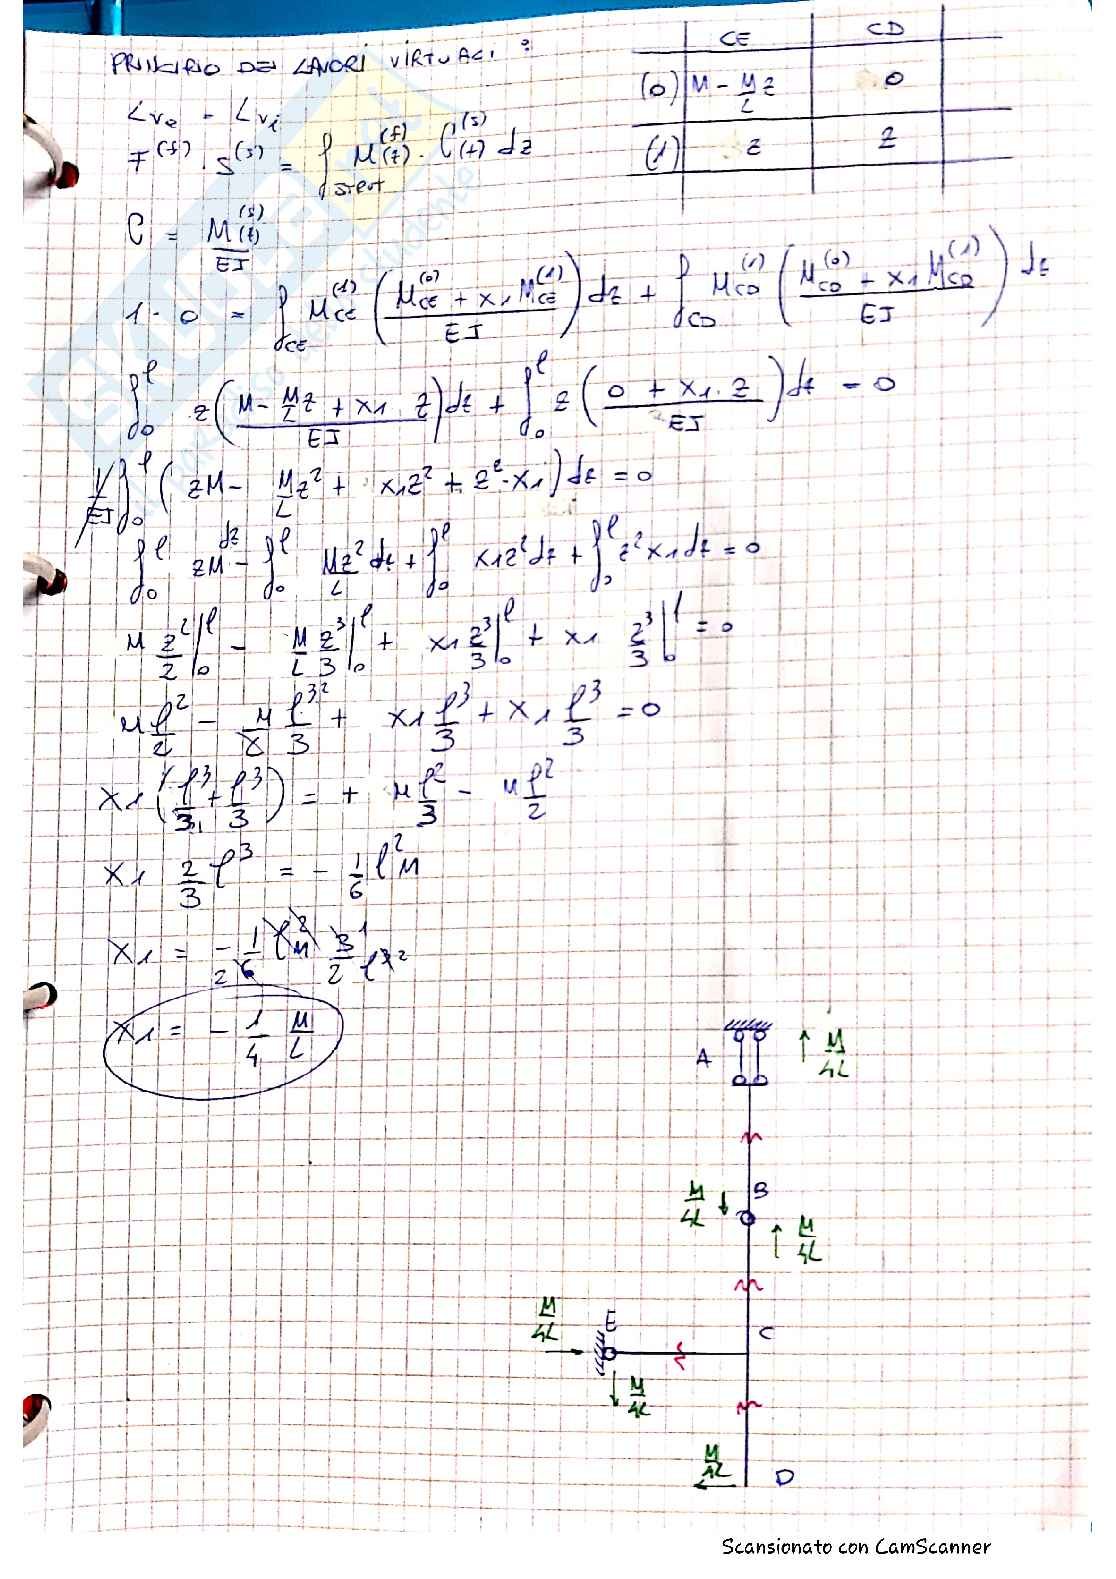 PRINCIPIO DEI LAVORI VIRTUALI:
CE CD
(0) M - M/L z 0
(1) z z
Lve = Lvi
F^(f) · s^(s) = ∫STRUT M^(f)(z) · C^(s)(z) dz
C = M^(s)(z)/EI
1 · 0 = ∫CE M^(1)CE ( (M^(0)CE + x1 M^(1)CE)/EI ) dz + ∫CD M^(1)CD ( (M^(0)CD + x1 M^(1)CD)/EI ) dz
∫0^l z ( (M - M/L z + x1 · z)/EI ) dz + ∫0^l z ( (0 + x1 · z)/EI ) dz = 0
1/EI ∫0^l ( zM - M/L z² + x1z² + z² · x1 ) dz = 0
∫0^l zM dz - ∫0^l M/L z² dz + ∫0^l x1z² dz + ∫0^l z² x1 dz = 0
M z²/2 |0^l - M/L z³/3 |0^l + x1 z³/3 |0^l + x1 z³/3 |0^l = 0
M l²/2 - M/L l³²/3 + x1 l³/3 + x1 l³/3 = 0
x1 ( l³/3 + l³/3 ) = + M l²/3 - M l²/2
x1 2/3 l³ = - 1/6 l² M
x1 = - 1/6 l² M 3/2 l³
x1 = - 1/4 M/L
A M/4L
B
M/4L
M/4L
M/4L E C
M/4L
M/4L D
Scansionato con CamScanner